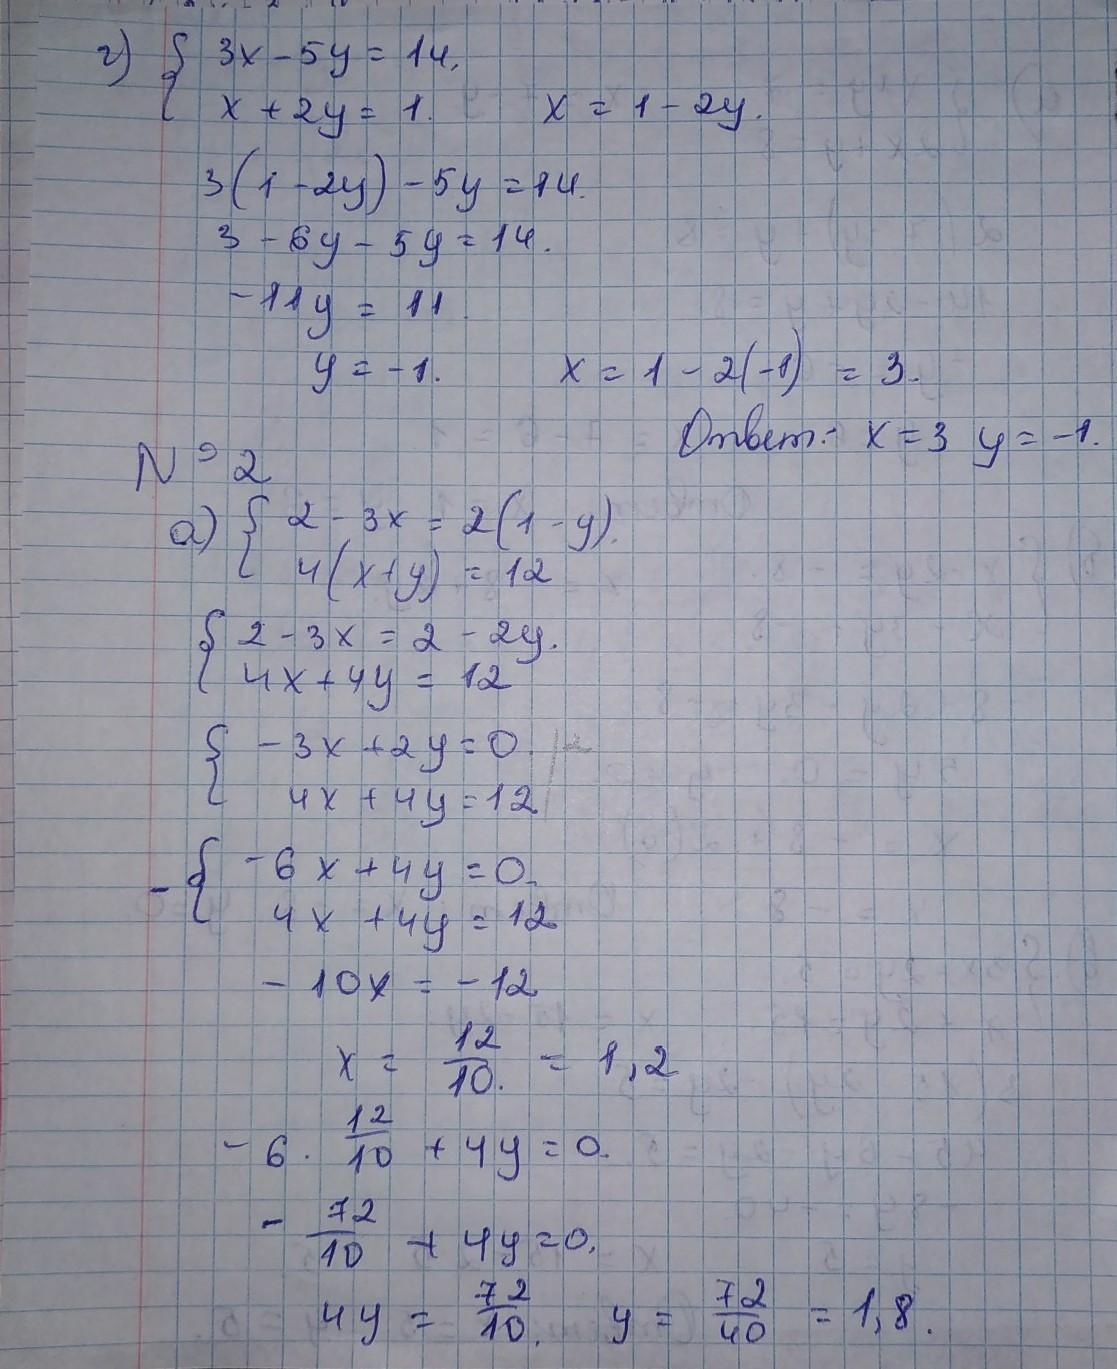 г) { 3x - 5y = 14.
x + 2y = 1. x = 1 - 2y.
3(1 - 2y) - 5y = 14.
3 - 6y - 5y = 14.
-11y = 11
y = -1. x = 1 - 2(-1) = 3.
Ответ: x = 3 y = -1.
N° 2
а) { 2 - 3x = 2(1 - y).
4(x+y) = 12
{ 2 - 3x = 2 - 2y.
4x + 4y = 12
{ -3x + 2y = 0. |·2
4x + 4y = 12
- { -6x + 4y = 0.
4x + 4y = 12
- 10x = -12
x = 12/10. = 1,2
- 6 · 12/10 + 4y = 0.
- 72/10 + 4y = 0.
4y = 72/10. y = 72/40 = 1,8.